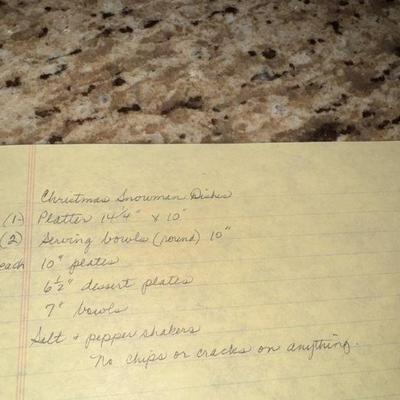 Christmas Snowman Dishes
(1) Platter 14 1/4" x 10"
(2) Serving bowls (round) 10"
each 10" plates
6 1/2" dessert plates
7" bowls
Salt + pepper shakers
No chips or cracks on anything.